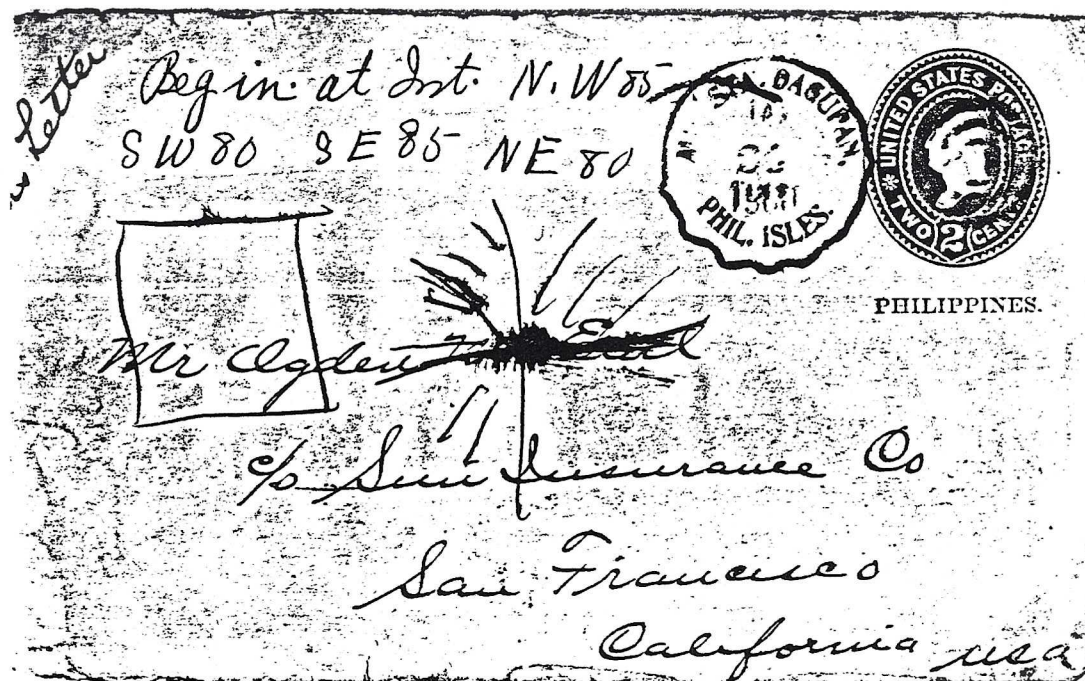 Letter
Begin at Int. N.W 85
SW 80 SE 85 NE 80
STA. DAGUPAN
PHIL. ISLES.
* UNITED STATES POSTAGE *
TWO 2 CENTS
PHILIPPINES.
Mr Ogden
c/o Sun Insurance Co
San Francisco
California USA